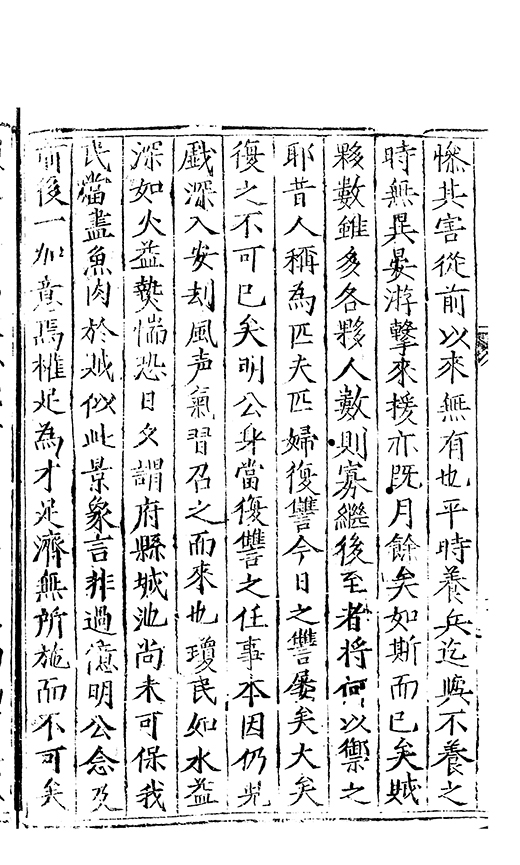 慘其害從前以來無有也平時養兵迄與不養之
時無異晏游擊來援亦既月餘矣如斯而已矣賊
夥數雖多各夥人數則寡繼後至者將何以禦之
耶昔人稱為匹夫匹婦復讐今日之讐屢矣大矣
復之不可已矣明公身當復讐之任事本因仍光
戲深入安刦風声氣習召之而來也瓊民如水益
深如火益𤍠惴恐日夕謂府縣城池尚未可保我
民當盡魚肉於賊似此景象言非過憶明公念及
前後一加意焉權足為才足濟無所施而不可矣